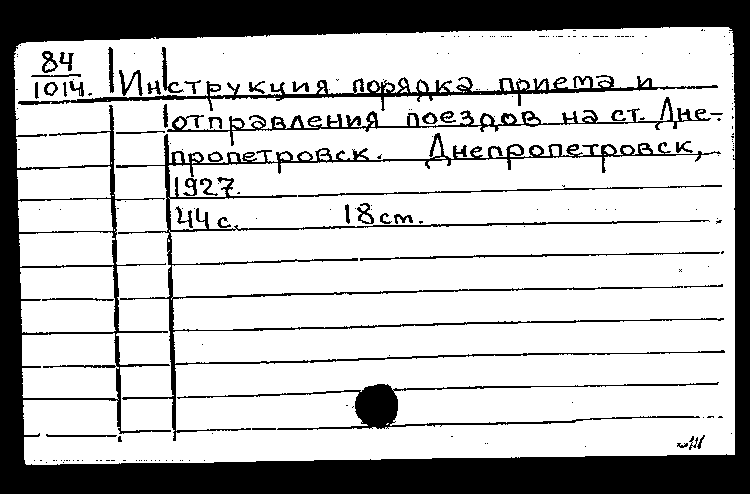 84
1014. Инструкция порядка приема и
отправления поездов на ст. Дне-
пропетровск. Днепропетровск,
1927.
44 с. 18 cm.